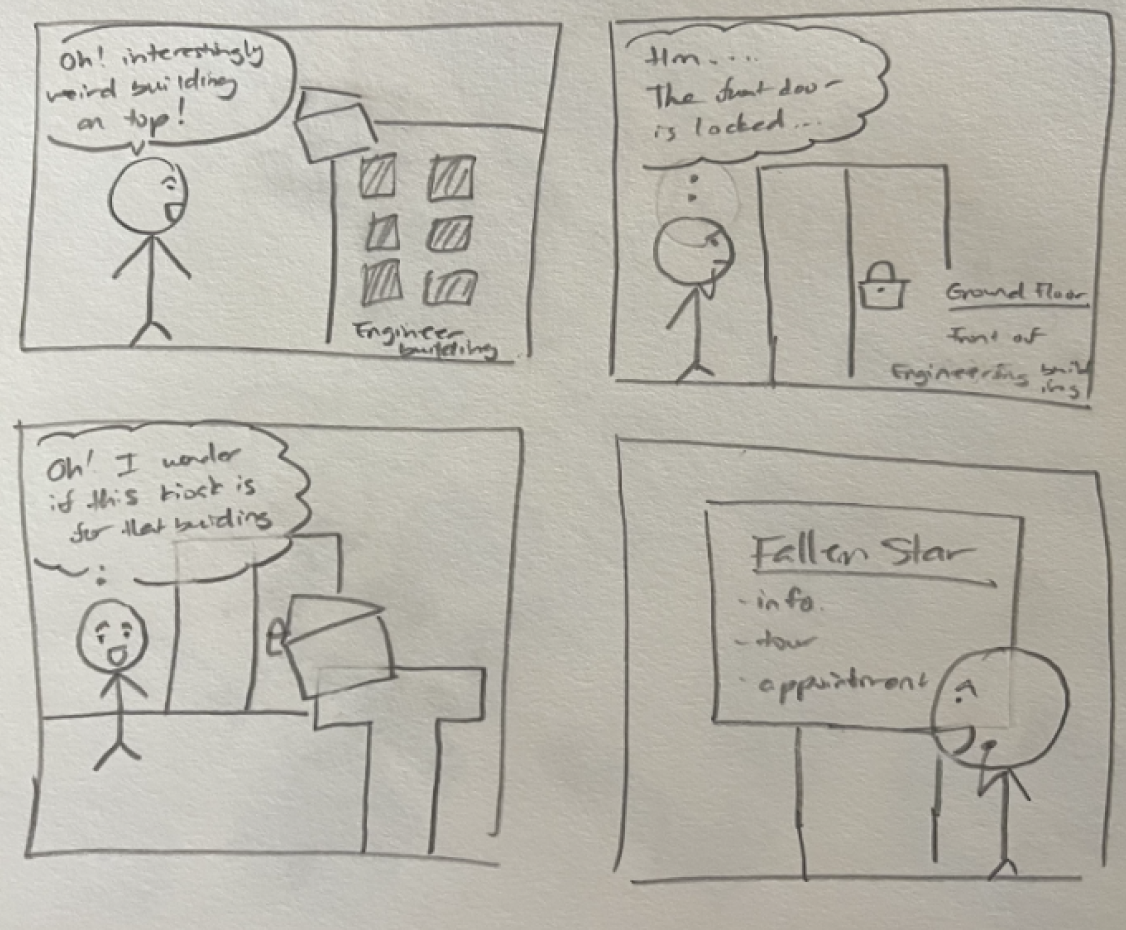 Oh! interestingly
weird building
on top!
Engineer
building
Hm....
The front door
is locked...
Ground Floor
Front of
Engineering build
ing
Oh! I wonder
if this kiosk is
for that building
Fallen Star
- info.
- tour
- appointment